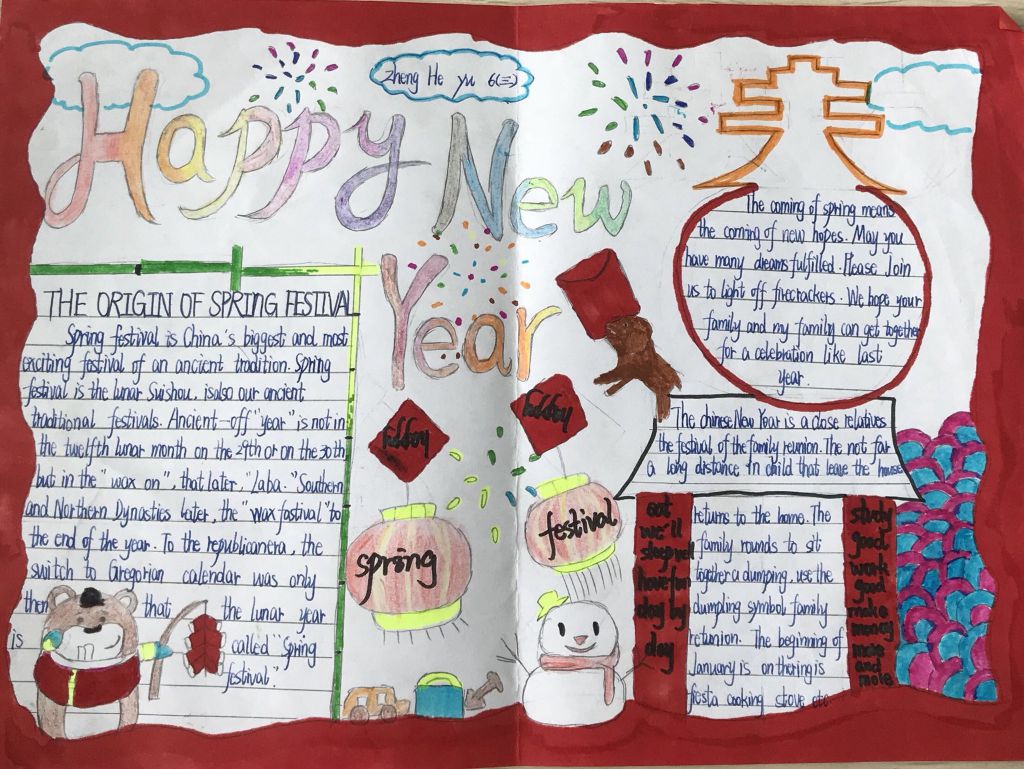 Happy New
Year
Zheng He yu 6(三)
THE ORIGIN OF SPRING FESTIVAL
Spring festival is China's biggest and most
exciting festival of an ancient tradition. Spring
festival is the lunar Suishou. isalso our ancient
traditional festivals. Ancient-off "year" is not in
the twelfth lunar month on the 29th or on the 30th
but in the "wax on", that later, "Laba." Southern
and Northern Dynasties later, the "wax fastival" to
the end of the year. To the republicanera, the
switch to Gregorian calendar was only
then that the lunar year
is called "Spring
festival."
happy
happy
spring
festival
The coming of spring means
the coming of new hopes. May you
have many dreams fulfilled. Please Join
us to light off firecrackers. We hope your
family and my family can get together
for a celebration like last
year.
The chinese New Year is a close relatives
the festival of the family reunion. The not far
a long distance in child that leave the house
returns to the home. The
family rounds to sit
together a dumping, use the
dumpling symbol family
retunion. The beginning of
January is on thering is
fiesta cooking stove etc
eat
we'll
sleep well
have fun
day by
day
study
good
work
good
make
money
more
and
more